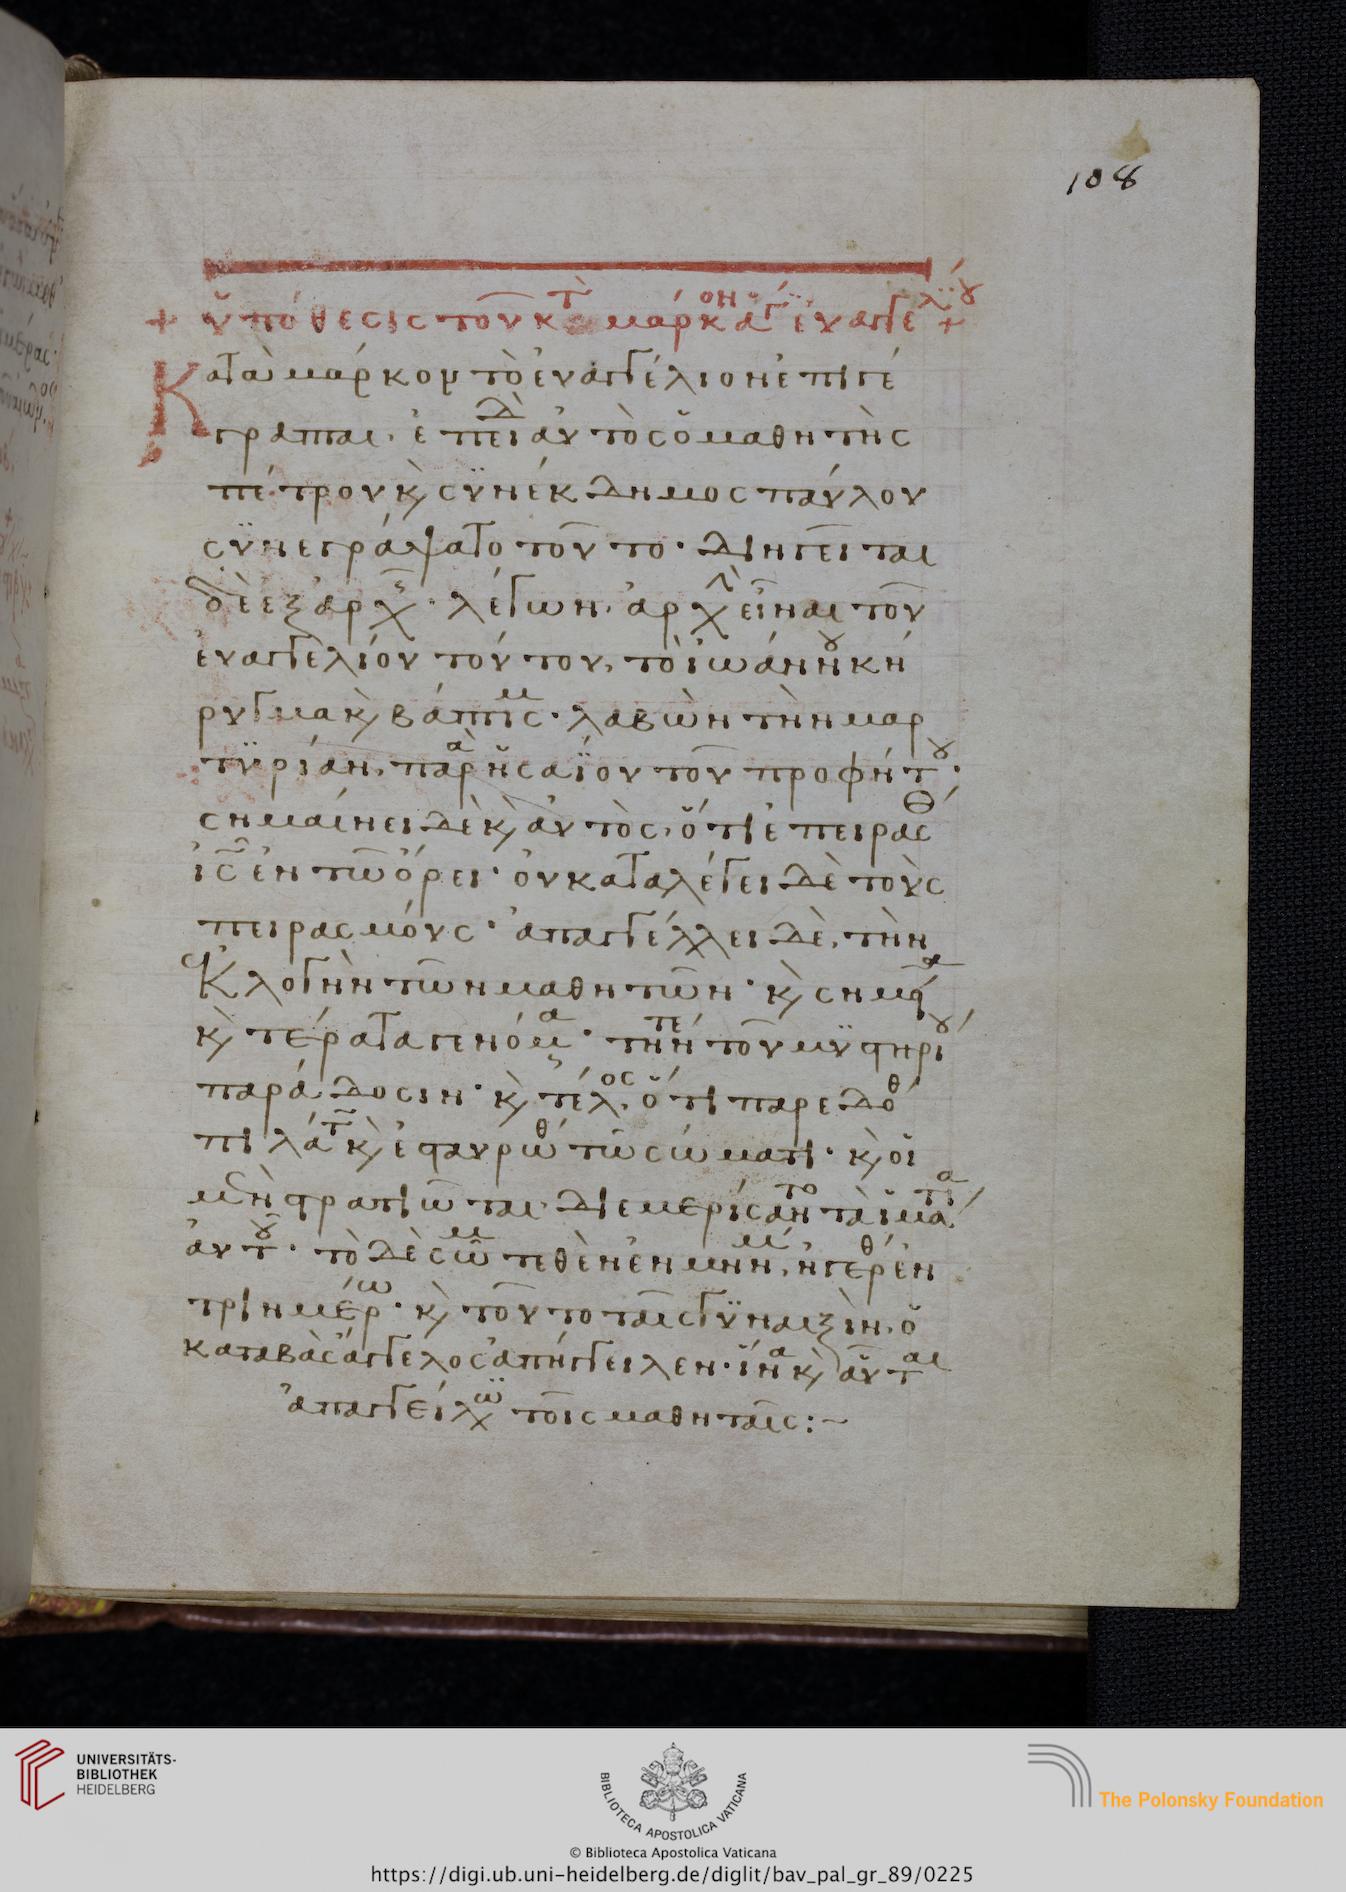 108
+ ὑπόθεσις τοῦ κτ̀ μάρκον ἁγ́ εὐαγγελίου +
Κατὰ μάρκον τὸ ἐυαγγέλιον ἐπιγέ
γραπται· ἐπειδ̀ ἀυτὸς ὁ μαθητὴς
πέτρου κ̀ συνέκδημος παύλου
συνεγράψατο τοῦτο· διηγεῖται
δὲ ἐξ ἀρχῆς· λέγων· ἀρχὴν εἶναι τοῦ
ἐυαγγελίου τούτου, τὸ ἰωάννου κή
ρυγμα κ̀ βάπτισμ· λαβὼν τὴν μαρ
τυρίαν, παρὰ ἡσαΐου τοῦ προφήτου·
σημαίνει δὲ κ̀ ἀυτὸς, ὅτι ἐπειράσθ
ις̄ ἐν τῶ ὄρει· ὀυ καταλέγει δὲ τοὺς
πειρασμούς· ἀπαγγέλλει δὲ, τὴν
ἐκλογὴν τῶν μαθητῶν· κ̀ σημεῖα
κ̀ τέρατα γενόμενα· τήν τε τοῦ μυστηρίου
παράδοσιν· κ̀ τέλος, ὅτι παρεδόθ
πιλάτω κ̀ ἐσταυρώθ τῶ σώματι· κ̀ οἱ
μὲν στρατιῶται διεμερίσαντο τὰ ἱμάτια
ἀυτοῦ· τὸ δὲ σῶμ τεθὲν ἐν μνημ, ἠγέρθ ἐν
τριημέρω· κ̀ τοῦτο ταῖς γυναιξὶν, ὁ
καταβὰς ἄγγελος ἀπήγγειλεν· ἵνα κ̀ αὗται
ἀπαγγείλω τοῖς μαθηταῖς:~
UNIVERSITÄTS-
BIBLIOTHEK
HEIDELBERG
BIBLIOTECA APOSTOLICA VATICANA
© Biblioteca Apostolica Vaticana
The Polonsky Foundation
https://digi.ub.uni-heidelberg.de/diglit/bav_pal_gr_89/0225